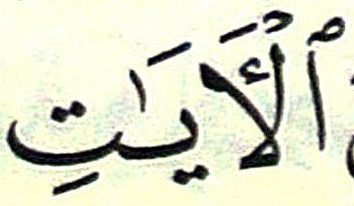 ٱلْأَيَـٰتِ